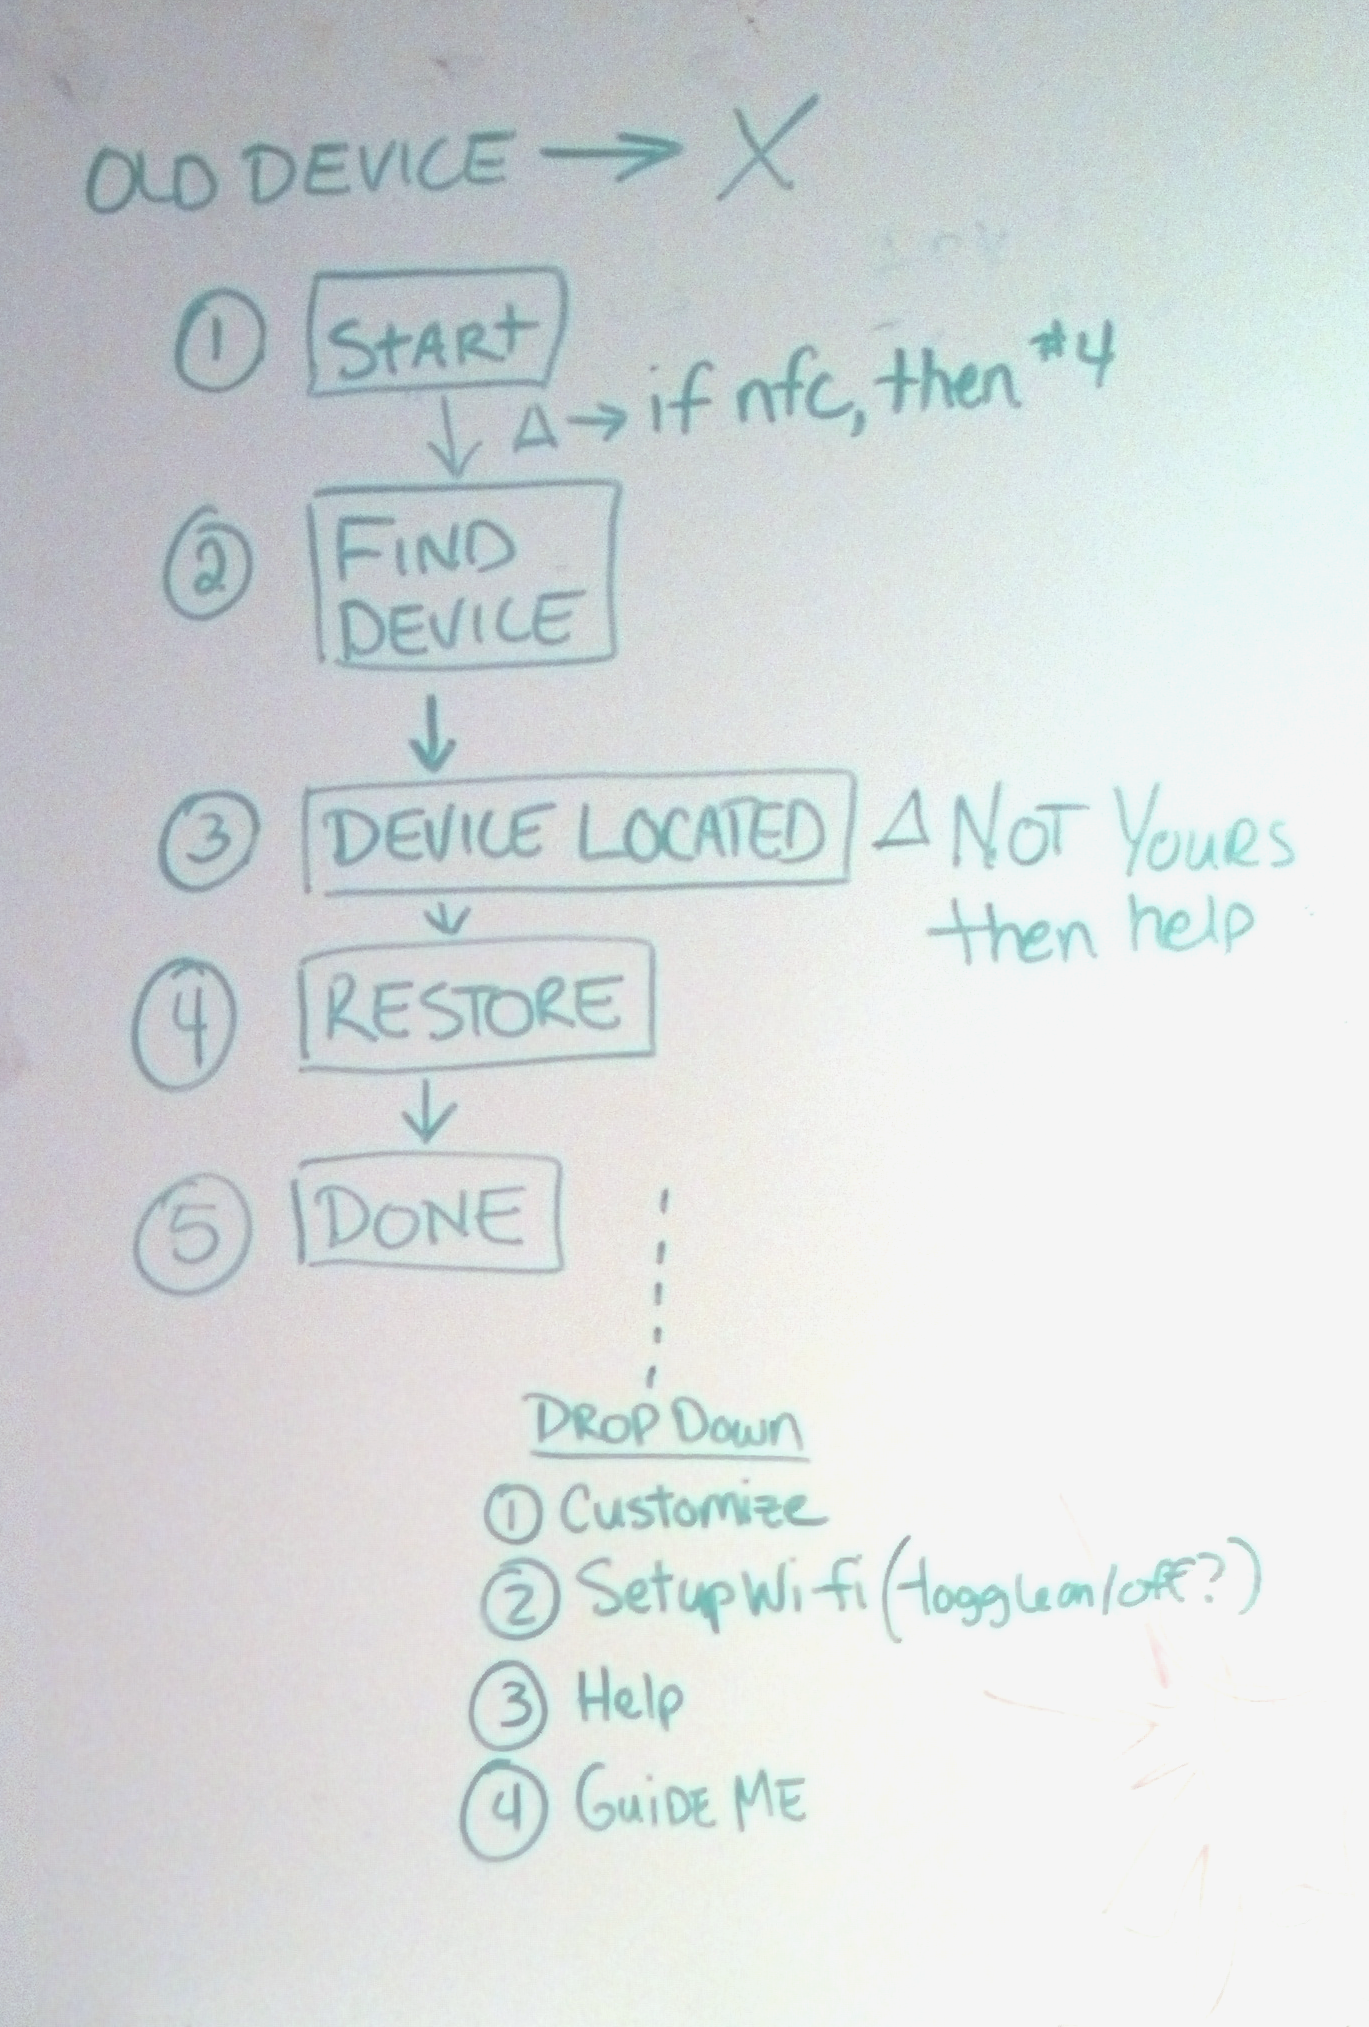 OLD DEVICE → X
① START
Δ → if nfc, then #4
② FIND
DEVICE
③ DEVICE LOCATED Δ NOT YOURS
then help
④ RESTORE
⑤ DONE
DROP DOWN
① Customize
② Setup Wifi (toggle on/off?)
③ Help
④ GUIDE ME